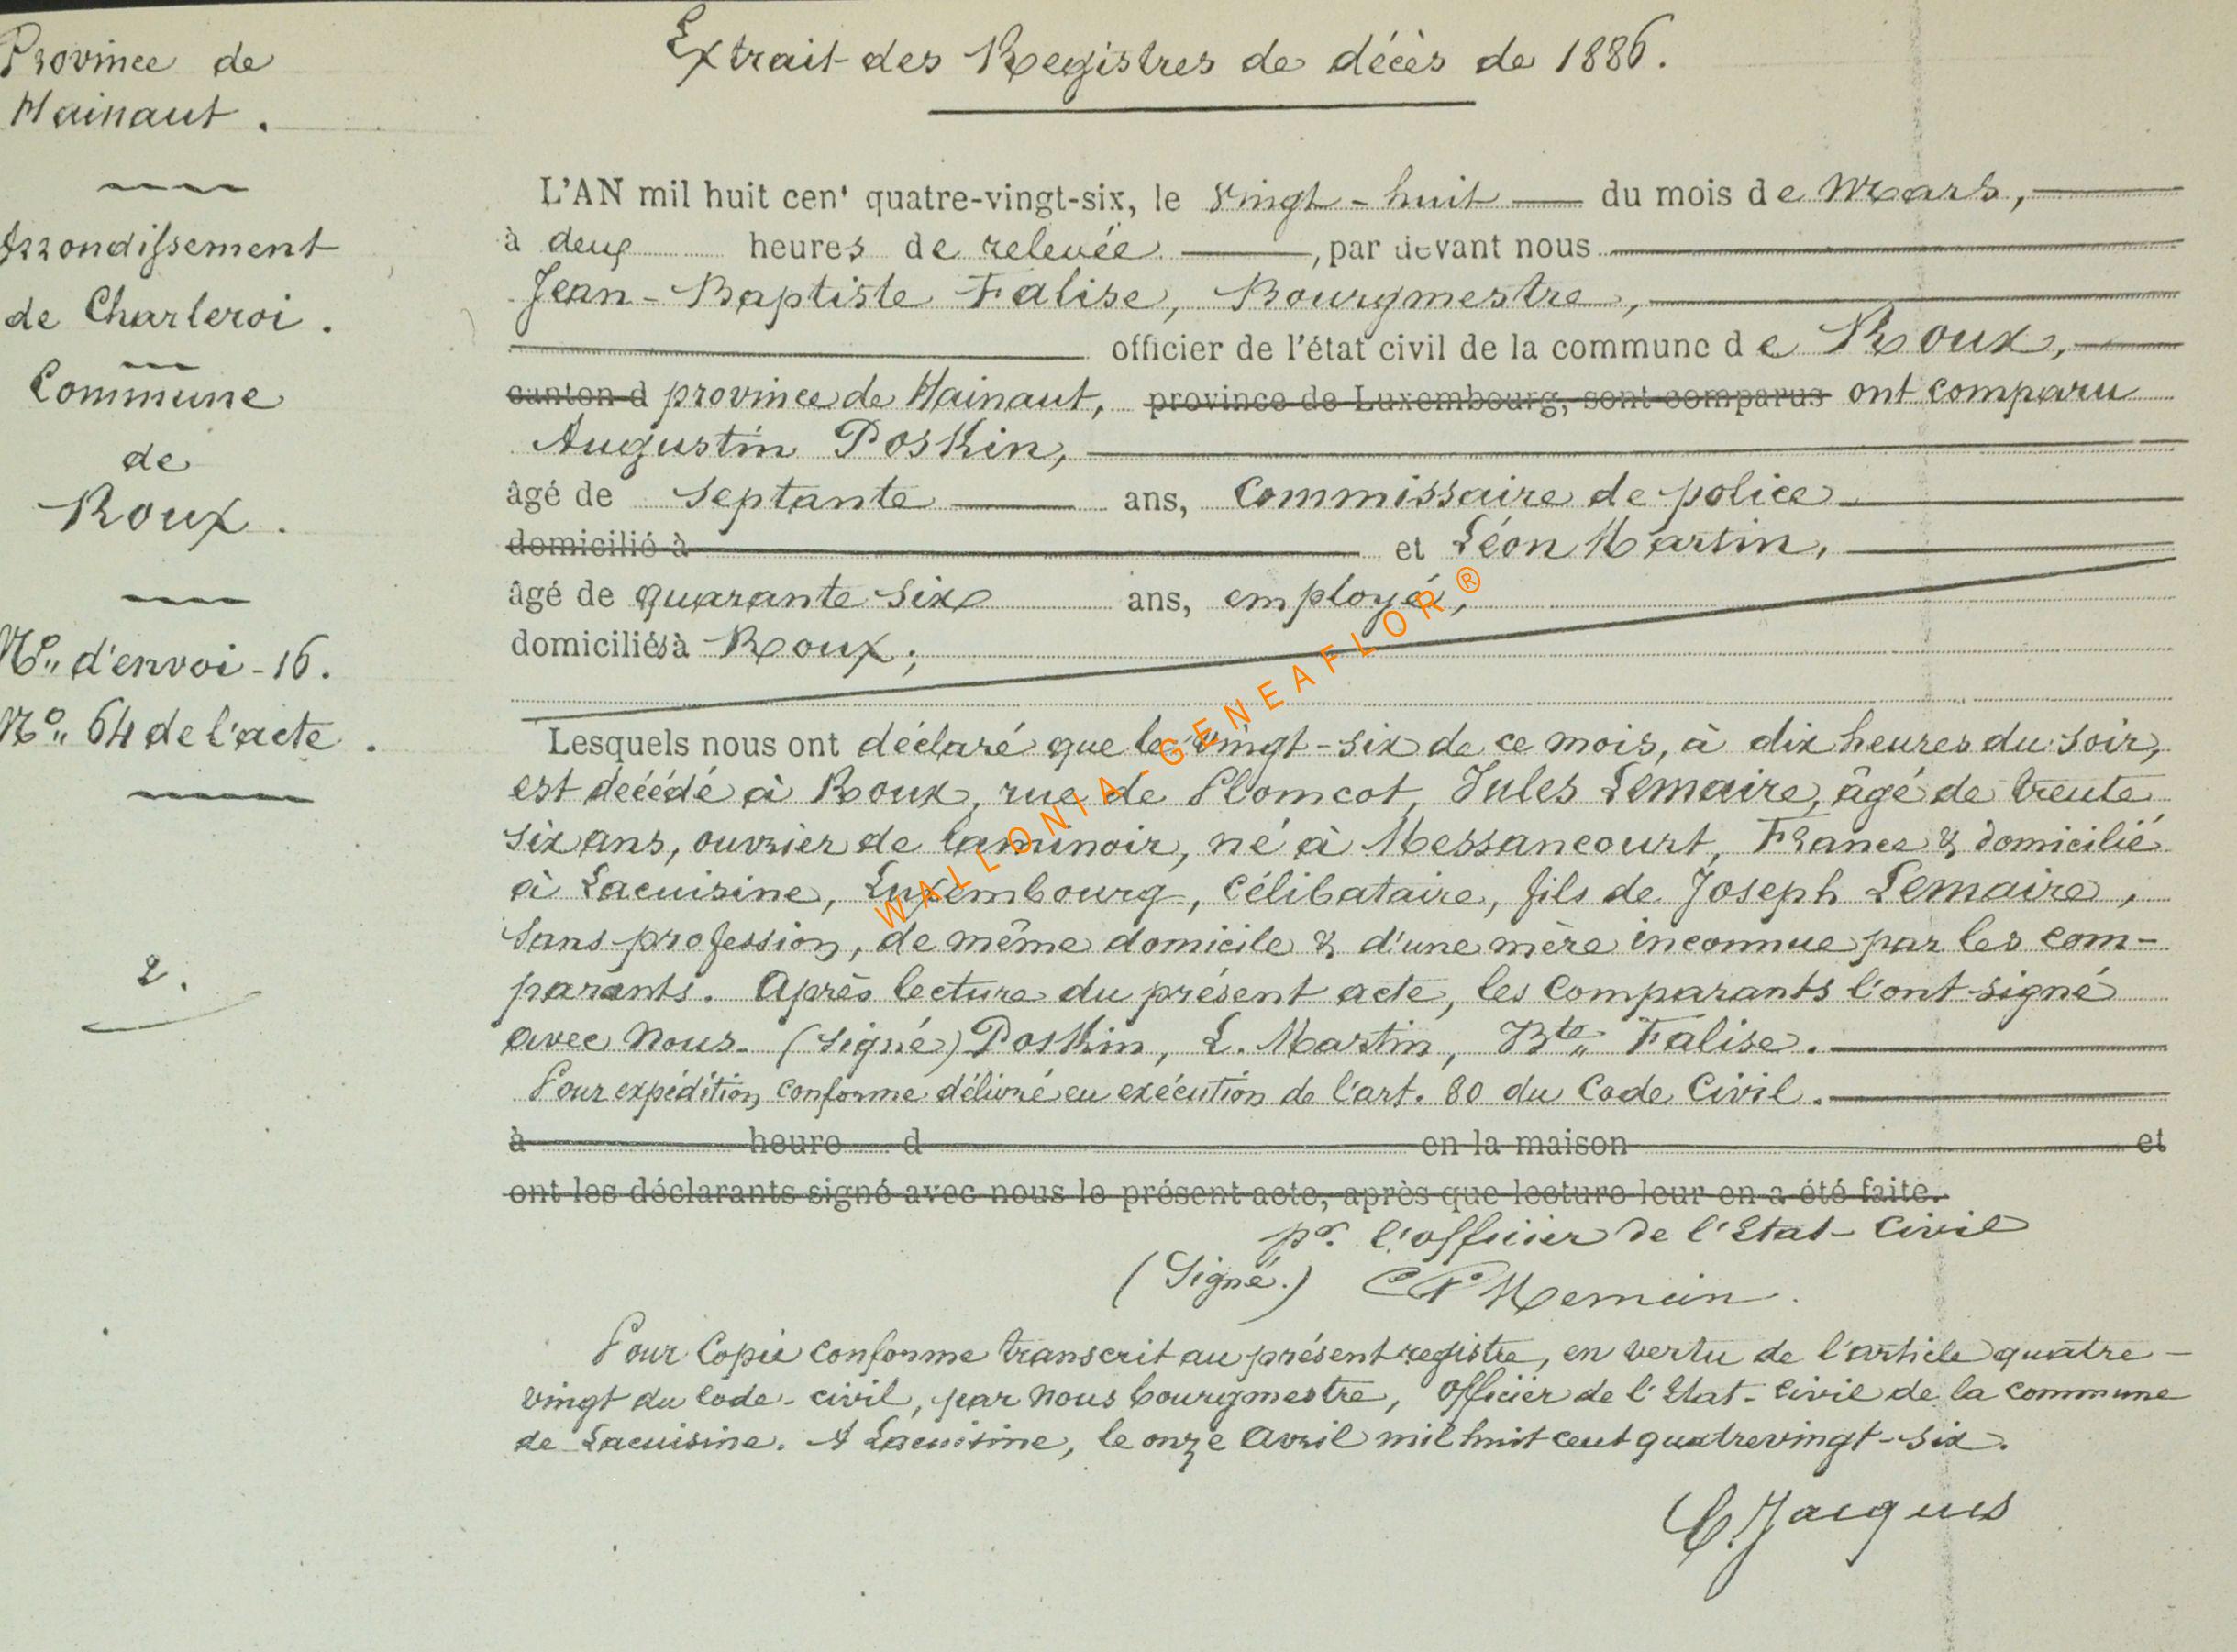 Extrait des Registres de décès de 1886.
Province de
Hainaut.
Arrondissement
de Charleroi.
Commune
de
Roux.
N° d'envoi - 16.
N° 64 de l'acte.
2.
L'AN mil huit cent quatre-vingt-six, le vingt-huit du mois de Mars,
à deux heures de relevée, par devant nous
Jean-Baptiste Falise, Bourgmestre,
officier de l'état civil de la commune de Roux,
canton d province de Hainaut, province de Luxembourg, sont comparus ont comparu
Augustin Poskin,
âgé de septante ans, Commissaire de police
domicilié à et Léon Martin,
âgé de quarante six ans, employé,
domiciliés à Roux;
Lesquels nous ont déclaré que le vingt-six de ce mois, à dix heures du soir,
est décédé à Roux, rue de Plomcot, Jules Lemaire, âgé de trente
six ans, ouvrier de laminoir, né à Messancourt, France & domicilié
à Lacuisine, Luxembourg, célibataire, fils de Joseph Lemaire,
sans profession, de même domicile & d'une mère inconnue par les com-
parants. Après lecture du présent acte, les comparants l'ont signé
avec nous. (signé) Poskin, L. Martin, Bte Falise.
Pour expédition conforme délivré en exécution de l'art. 80 du Code Civil.
à heure d en la maison et
ont les déclarants signé avec nous le présent acte, après que lecture leur en a été faite.
pr. l'officier de l'Etat-Civil
(Signé.)
Pour Copie conforme transcrit au présent registre, en vertu de l'article quatre-
vingt du Code-civil, par nous bourgmestre, Officier de l'Etat-Civil de la commune
de Lacuisine. A Lacuisine, le onze Avril mil huit cent quatrevingt-six.
C. Jacques
WALLONIA-GENEAFLOR®